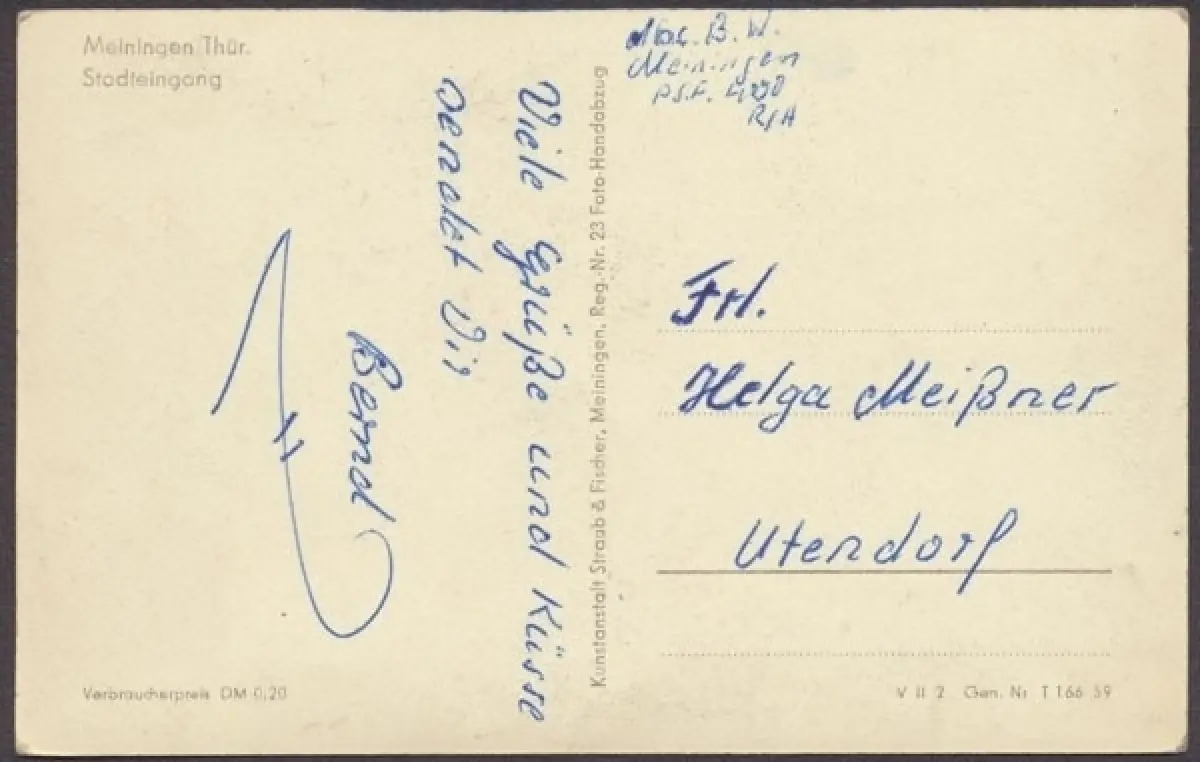 Meiningen Thür.
Stadteingang
Viele Grüße und Küsse
sendet Dir
Bernd
Verbraucherpreis DM 0,20
Kunstanstalt Straub & Fischer, Meiningen, Reg.-Nr. 23 Foto-Handabzug
B. W.
Meiningen
P.S.F.
Frl.
Helga Meißner
Utendorf
V II 2 Gen. Nr T 166 59